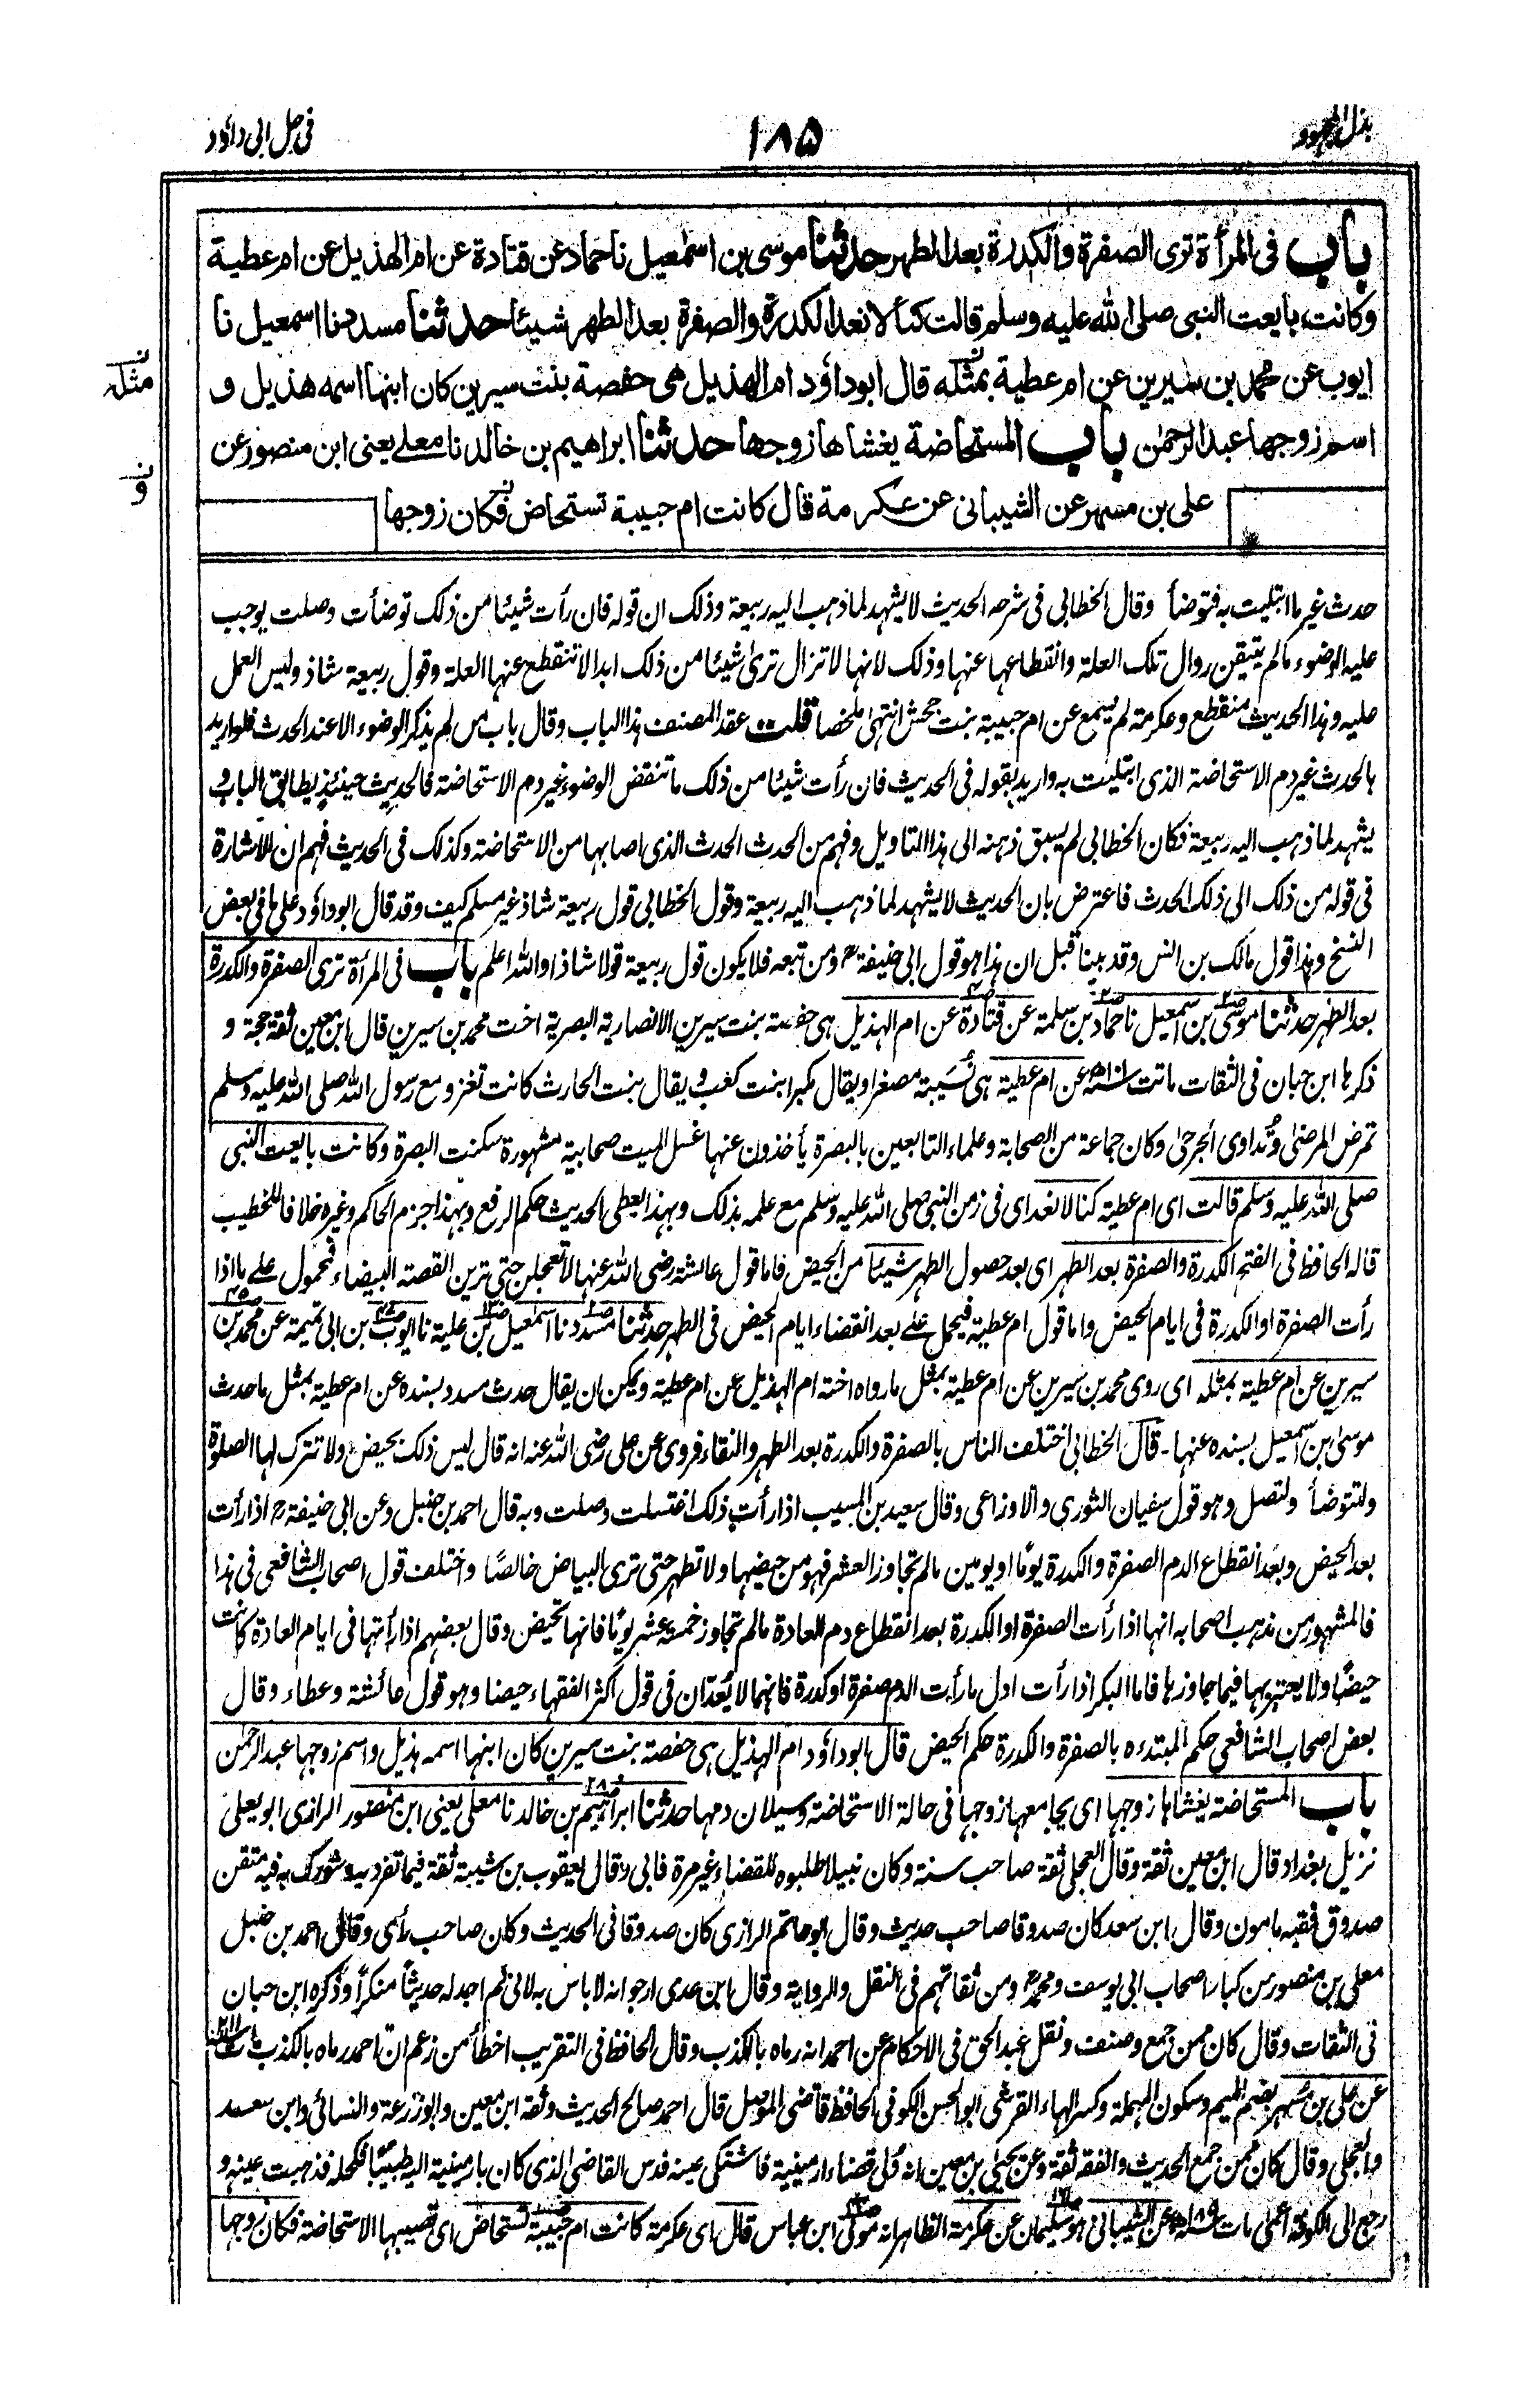 بذل المجهود
١٨٥
فی حل ابی داؤد
باب فی المرأة تری الصفرة والکدرة بعد الطهر حدثنا موسی بن اسمٰعیل نا حماد عن قتادة عن ام الهذیل عن ام عطیة
وکانت بایعت النبی صلی الله علیه وسلم قالت کنا لا نعد الکدرة والصفرة بعد الطهر شیئا حدثنا مسدد نا اسمعیل نا
ایوب عن محمد بن سیرین عن ام عطیة بمثله قال ابوداؤد ام الهذیل هی حفصة بنت سیرین کان ابنها اسمه هذیل و
اسم زوجها عبدالرحمٰن باب المستحاضة یغشاها زوجها حدثنا ابراهیم بن خالد نا معلے یعنی ابن منصور عن
علی بن مسهر عن الشیبانی عن عکرمة قال کانت ام حبیبة تستحاض فکان زوجها
ن
مثله
ن
و
حدث غیر ما ابتلیت به فتوضأ وقال الخطابی فی شرحه الحدیث لا یشهد لما ذهب الیه ربیعة وذلک ان قوله فان رأت شیئا من ذلک توضأت وصلت یوجب
علیها الوضوء مالم یتیقن زوال تلک العلة وانقطاعها عنها وذلک لانها لا تزال تریٰ شیئا من ذلک ابدا لا تنقطع عنها العلة وقول ربیعة شاذ ولیس العمل
علیه وهذا الحدیث منقطع وعکرمة لم یسمع عن ام حبیبة بنت جحش انتهیٰ ملخصا قلت عقد المصنف هذا الباب وقال باب من لم یذکر الوضوء الا عند الحدث فلو ارید
بالحدث غیر دم الاستحاضة الذی ابتلیت به وارید بقوله فی الحدیث فان رأت شیئا من ذلک ما تنقض الوضوء غیر دم الاستحاضة فالحدیث حینئذ یطابق الباب و
یشهد لما ذهب الیه ربیعة فکان الخطابی لم یسبق ذهنه الی هذا التاویل وفهم من الحدث الحدث الذی اصابها من الاستحاضة وکذلک فی الحدیث فهم ان الاشارة
فی قوله من ذلک الی ذلک الحدث فاعترض بان الحدیث لا یشهد لما ذهب الیه ربیعة وقول الخطابی قول ربیعة شاذ غیر مسلم کیف وقد قال ابوداؤد علی ما فی بعض
النسخ وهذا قول مالک بن انس وقد بینا قبل ان هذا هو قول ابی حنیفة ومن تبعه فلا یکون قول ربیعة قولا شاذا والله اعلم باب فی المرأة تری الصفرة والکدرة
بعد الطهر حدثنا موسی بن اسمعیل نا حماد بن سلمة عن قتادة عن ام الهذیل هی حفصة بنت سیرین الانصاریة البصریة اخت محمد بن سیرین قال ابن معین ثقة حجة و
ذکرها ابن حبان فی الثقات ماتت سنة ۱۰۱ھ عن ام عطیة هی نُسَیبة مصغرا ویقال مکبرا بنت کعب ویقال بنت الحارث کانت تغزو مع رسول الله صلی الله علیه وسلم
تمرض المرضیٰ وتداوی الجرحیٰ وکان جماعة من الصحابة وعلماء التابعین بالبصرة یأخذون عنها غسل المیت صحابیة مشهورة سکنت البصرة وکانت بایعت النبی
صلی الله علیه وسلم قالت ای ام عطیة کنا لا نعد ای فی زمن النبی صلی الله علیه وسلم مع علمه بذلک وبهذا یعطی الحدیث حکم الرفع وبهذا جزم الحاکم وغیره خلافا للخطیب
قاله الحافظ فی الفتح الکدرة والصفرة بعد الطهر ای بعد حصول الطهر شیئا من الحیض فاما قول عائشة رضی الله عنها لا تعجلن حتی ترین القصة البیضاء فمحمول علے ما اذا
رأت الصفرة او الکدرة فی ایام الحیض واما قول ام عطیة فیحمل علے بعد انقضاء ایام الحیض فی الطهر حدثنا مسدد نا اسمٰعیل بن علیة نا ایوب بن ابی تمیمة عن محمد بن
سیرین عن ام عطیة بمثله ای روی محمد بن سیرین عن ام عطیة بمثل ما رواه اخته ام الهذیل عن ام عطیة ویمکن ان یقال حدث مسدد بسنده عن ام عطیة بمثل ما حدث
موسیٰ بن اسمعیل بسنده عنها۔ قال الخطابی اختلف الناس بالصفرة والکدرة بعد الطهر والنقاء فروی عن علی رضی الله عنه انه قال لیس ذلک بحیض ولا تترک لها الصلوة
ولتتوضأ ولتصل وهو قول سفیان الثوری والاوزاعی وقال سعید بن المسیب اذا رأت ذلک اغتسلت وصلت وبه قال احمد بن حنبل وعن ابی حنیفة اذا رأت
بعد الحیض وبعد انقطاع الدم الصفرة والکدرة یومًا او یومین مالم تجاوز العشر فهو من حیضها ولا تطهر حتی تری البیاض خالصًا واختلف قول اصحاب الشافعی فی هذا
فالمشهور من مذهب اصحابه انها اذا رأت الصفرة او الکدرة بعد انقطاع دم العادة مالم تجاوز خمسة عشر یومًا فانها تحیض وقال بعضهم اذا رأتها فی ایام العادة کانت
حیضًا ولا یعتبرها فیما جاوزها فاما البکر اذا رأت اول ما رأت الدم صفرة او کدرة فانهما لا یُعدّان فی قول اکثر الفقهاء حیضا وهو قول عائشة وعطاء وقال
بعض اصحاب الشافعی حکم المبتدءه بالصفرة والکدرة حکم الحیض قال ابوداؤد ام الهذیل هی حفصة بنت سیرین کان ابنها اسمه هذیل واسم زوجها عبدالرحمٰن
باب المستحاضة یغشاها زوجها ای یجامعها زوجها فی حالة الاستحاضة وسیلان دمها حدثنا ابراهیم بن خالد نا معلی یعنی ابن منصور الرازی ابو یعلیٰ
نزیل بغداد قال ابن معین ثقة وقال العجلی ثقة صاحب سنة وکان نبیلا طلبوه للقضاء غیر مرة فابی وقال یعقوب بن شیبة ثقة فیما تفرد به وشورک به فیه متقن
صدوق فقیه مامون وقال ابن سعد کان صدوقا صاحب حدیث وقال ابوحاتم الرازی کان صدوقا فی الحدیث وکان صاحب رأی وقال احمد بن حنبل
معلی بن منصور من کبار اصحاب ابی یوسف ومحمد ومن ثقاتهم فی النقل والروایة وقال ابن عدی ارجو انه لا باس به لانی لم اجد له حدیثًا منکرًا وذکره ابن حبان
فی الثقات وقال کان ممن جمع وصنف ونقل عبدالحق فی الاحکام عن احمد انه رماه بالکذب وقال الحافظ فی التقریب اخطأ من زعم ان احمد رماه بالکذب مات سنة ۲۱۱
عن علی بن مسهر بضم المیم وسکون المهملة وکسر الهاء القرشی ابو الحسن الکوفی الحافظ قاضی الموصل قال احمد صالح الحدیث وثقه ابن معین وابوزرعة والنسائی وابن سعد
والعجلی وقال کان ممن جمع الحدیث والفقه ثقة وعن یحیی بن معین انه ولی قضاء ارمینیة فاشتکی عینه فدس القاضی الذی کان بارمینیة الیه طبیبًا فکحله فذهبت عینه و
رجع الی الکوفة اعمیٰ مات سنة ۱۸۹ھ عن الشیبانی هو سلیمان عن عکرمة الظاهر انه مولی ابن عباس قال ای عکرمة کانت ام حبیبة تستحاض ای تصیبها الاستحاضة فکان زوجها